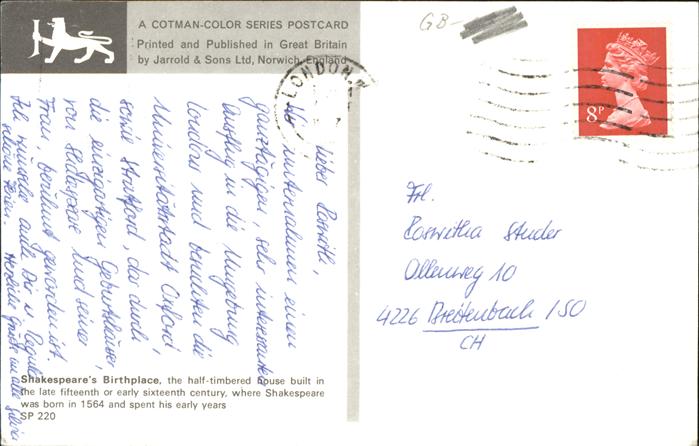 A COTMAN-COLOR SERIES POSTCARD
Printed and Published in Great Britain
by Jarrold & Sons Ltd, Norwich, England
GB
LONDON
8P
Liebe Roswith,
Wir unternahmen einen
ganztägigen, sehr interessanten
Ausflug in die Umgebung
Londons und besuchten die
Universitätsstadt Oxford,
sowie Stratford, das durch
die einzigartigen Geburtshäuser,
von Shakespeare und seiner
Frau, berühmt geworden ist.
Ich wünsche auch Dir u Regula
schöne Ferien. Herzliche Grüsse
Frl.
Roswitha Studer
Allenweg 10
4226 Breitenbach / SO
CH
Shakespeare's Birthplace, the half-timbered house built in
the late fifteenth or early sixteenth century, where Shakespeare
was born in 1564 and spent his early years
SP 220